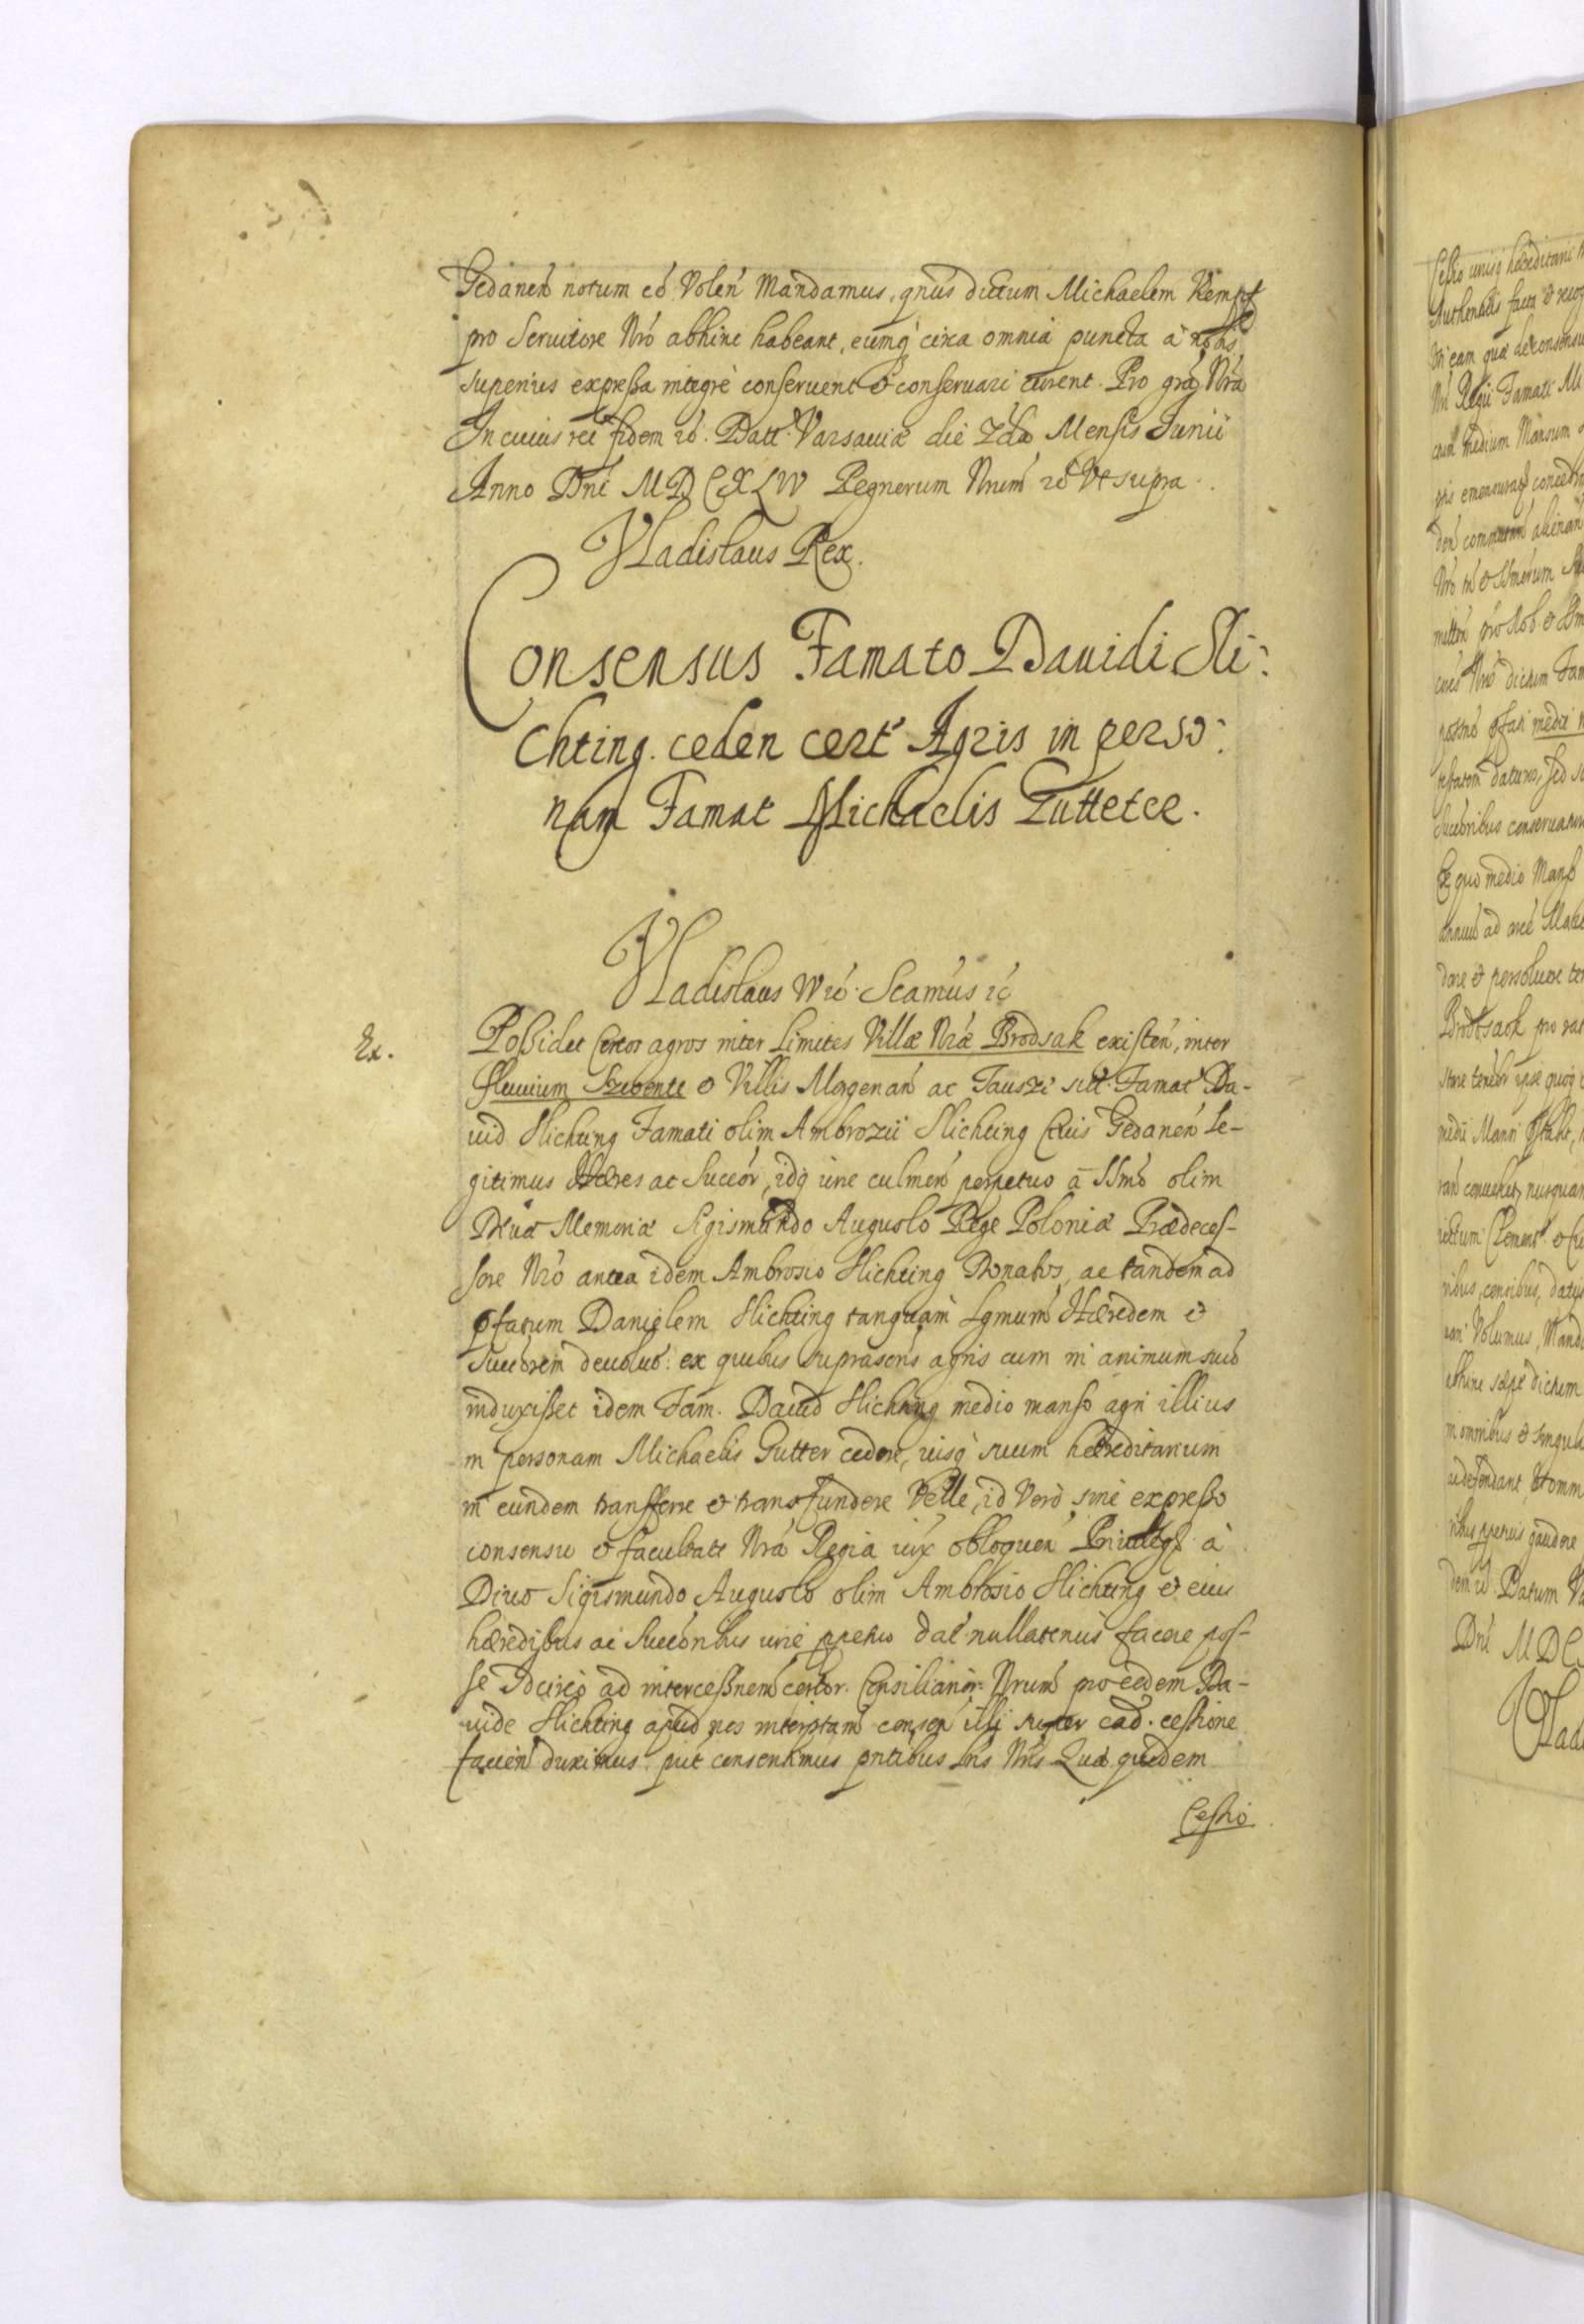 Gedanen notum eo Volen Mandamus, qnus dictum Michaelem Kempf
pro Seruitore Nro abhinc habeant, eumq circa omnia puncta à nobis
superius expressa integrè conseruent et conseruari curent. Pro gra Nra
In cuius rei fidem Datt. Varsauiæ die 2da Mensis Junii
Anno Dni MDCXLIV Regnorum Nrum Vt supra.
Vladislaus Rex.
Consensus Famato Dauidi Sli:
chting ceden cert Agris in perso:
nam Famat Michaelis Guttetee.
Vladislaus Scamus
Ex.
Possidet Certos agros inter Limites Villæ Nræ Brodsak existen, inter
fluuium Szwente et Villis Morgenan ac Tauszi sitt. Famat Da-
uid Slichting Famati olim Ambrozii Slichting Ciuis Gedanen Le-
gitimus Hæres ac Succor, idq iure culmen perpetuo à SSmo olim
Diuæ Memoriæ Sigismundo Augusto Rege Poloniæ Prædeces-
sore Nro antea idem Ambrosio Slichting Donatos, ac tandem ad
pfatum Danielem Slichting tanquam Lgmum Hæredem et
Succorem deuolut: ex quibus suprascris agris cum in animum suu
induxisset idem Fam. Dauid Slichting medio manso agri illius
in personam Michaelis Gutter cedere, iusq suum hæreditarium
in eundem transferre et transfundere Velle, id Verò sine expresso
consensu et facultate Nra Regia iux obloquen Priuilegij à
Diuo Sigismundo Augusto olim Ambrosio Slichting et eius
hæredibus ac Succoribus iure ppetuo dat nullatenus facere pos-
se Idcirco ad intercessnem certor. Consiliarior. Nrum pro eodem Da-
uide Slichting apud nos interptam consen illi super ead. cessione
facien duximus. put consentimus pntibus Lris Nris Quæ quidem
Cessio